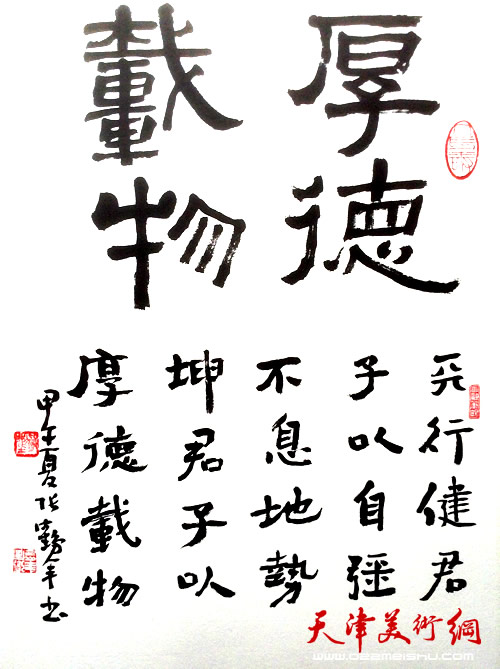 厚德
載物
天行健君
子以自强
不息地勢
坤君子以
厚德載物
甲午夏張鶴年书
天津美術網
www.022meishu.com